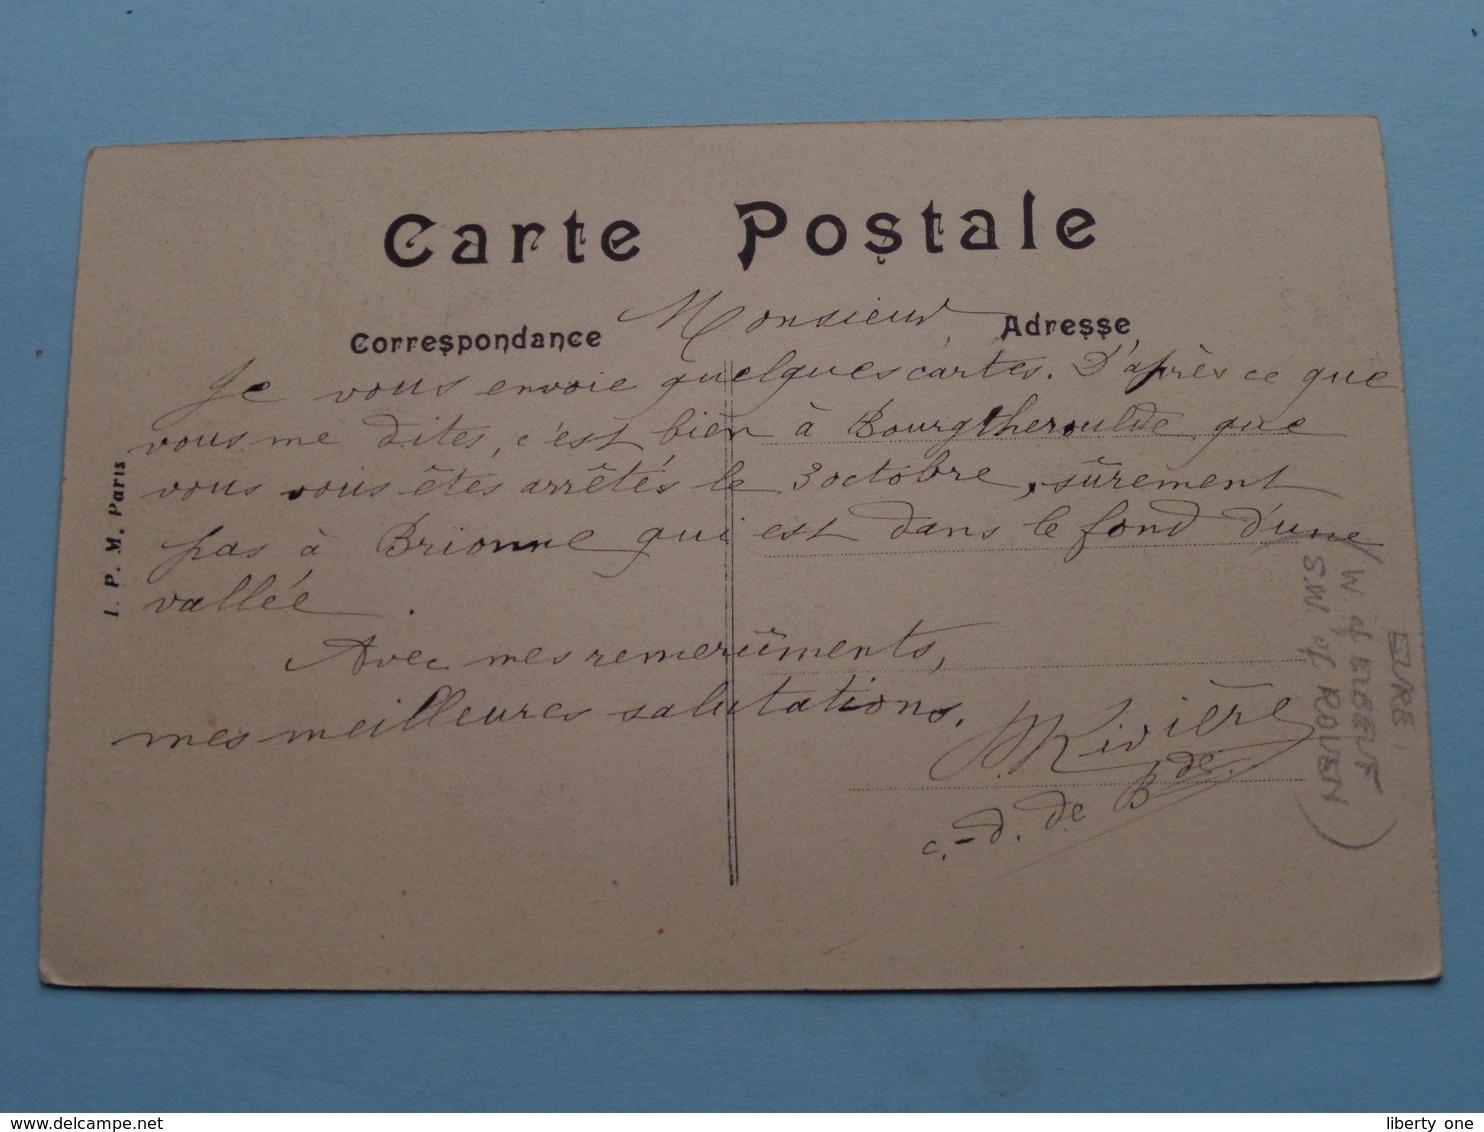 Carte Postale
Correspondance
Adresse
I. P. M. Paris
Monsieur,
Je vous envoie quelques cartes. D'après ce que
vous me dites, c'est bien à Bourgtheroulde que
vous vous êtes arrêtés le 3 octobre, sûrement
pas à Brionne qui est dans le fond d'une
vallée.
Avec mes remerciments,
mes meilleures salutations.
Rivière
c.-d. de Bde.
EURE.
(W of ELBEUF
S.W. of ROUEN)
liberty one